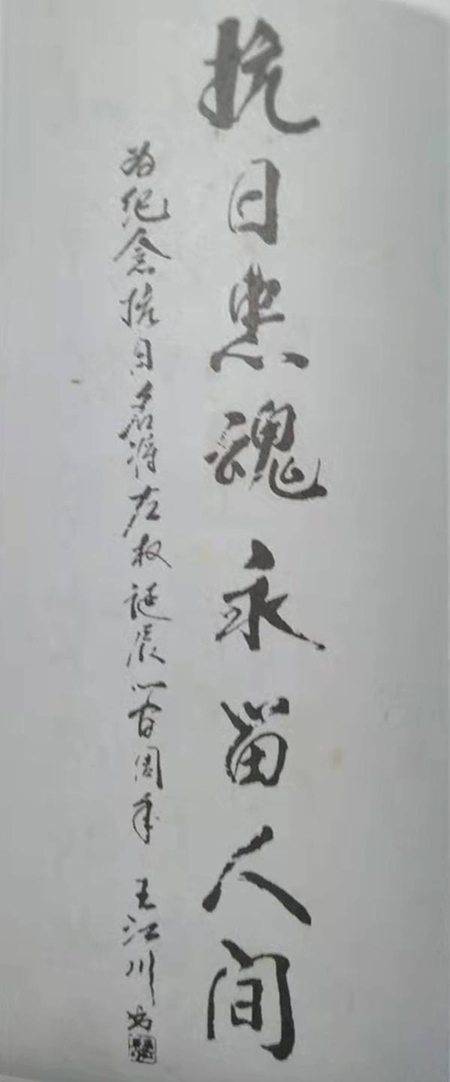 抗日忠魂永留人间
为纪念抗日名将左权诞辰一百周年 王江川书